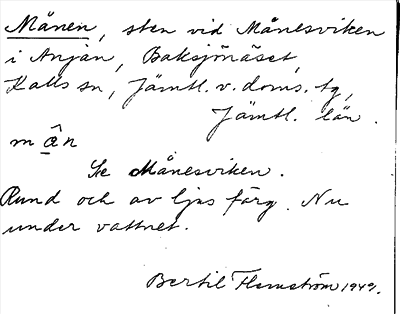 Månen, sten vid Månesviken
i Anjan, Baksjönäset,
Kalls sn, Jämtl. v. doms. tg,
Jämtl. län.
m æ̂ n
Se Månesviken.
Rund och av ljus färg. Nu
under vattnet.
Bertil Flemström 1949.